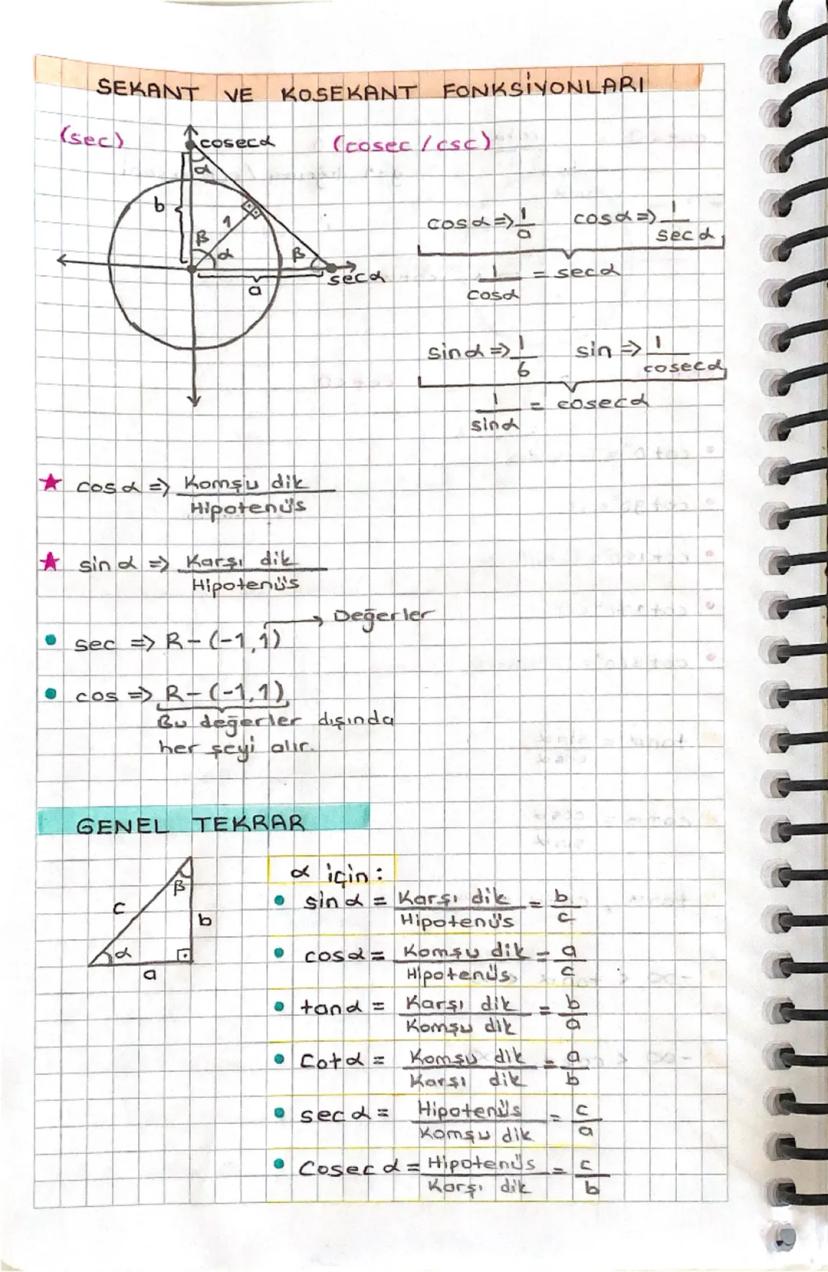 SEKANT VE KOSEKANT FONKSİYONLARI
(sec) (cosec / csc)
cosecα
α
b
1
β
α
β
secα
a
cosα ⇒ 1/a cosα ⇒ 1/secα
1/cosα = secα
sinα ⇒ 1/6 sin ⇒ 1/cosecα
1/sinα = cosecα
★ cosα ⇒ Komşu dik / Hipotenüs
★ sinα ⇒ Karşı dik / Hipotenüs
Değerler
• sec ⇒ R-(-1,1)
• cos ⇒ R-(-1,1)
Bu değerler dışında
her şeyi alır.
GENEL TEKRAR
β
c
b
α
a
α için:
• sinα = Karşı dik / Hipotenüs = b/c
• cosα = Komşu dik / Hipotenüs = a/c
• tanα = Karşı dik / Komşu dik = b/a
• Cotα = Komşu dik / Karşı dik = a/b
• secα = Hipotenüs / Komşu dik = c/a
• Cosecα = Hipotenüs / Karşı dik = c/b